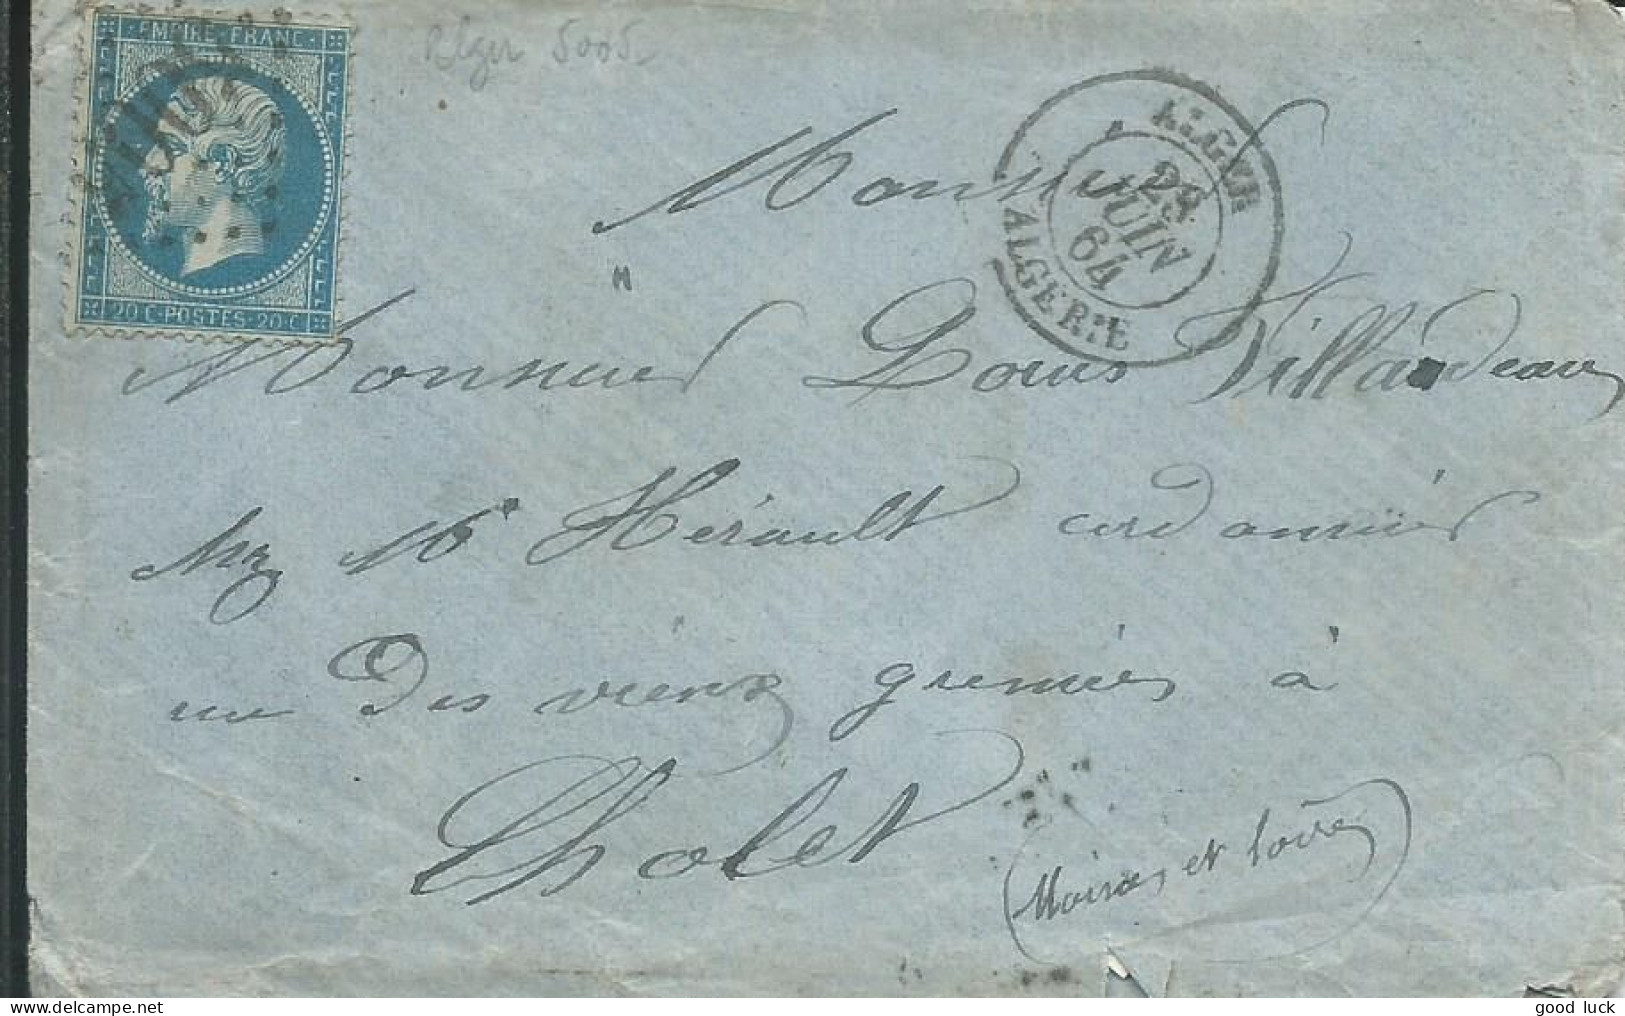 EMPIRE·FRANC
20 C·POSTES·20 C
Alger 5005
ALGER
28
JUIN
64
ALGÉRIE
Monsieur
Monsieur Louis Villardeau
chez Mr Hérault cordonnier
rue Des vieux greniers à
Cholet
(Maine et Loire)
www.delcampe.net
good_luck